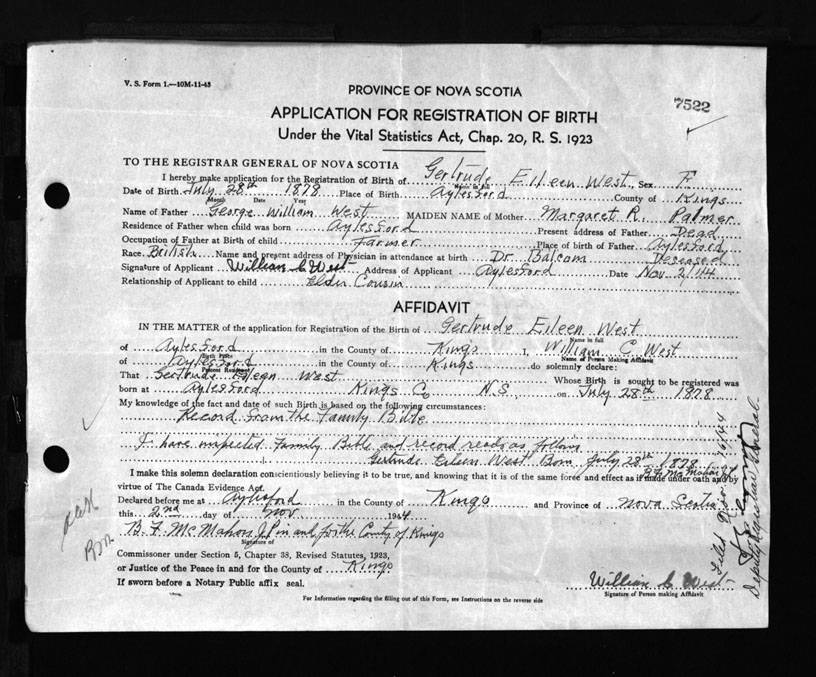 V. S. Form 1.—10M-11-43
PROVINCE OF NOVA SCOTIA
7522
APPLICATION FOR REGISTRATION OF BIRTH
Under the Vital Statistics Act, Chap. 20, R. S. 1923
TO THE REGISTRAR GENERAL OF NOVA SCOTIA
I hereby make application for the Registration of Birth of Gertrude Eileen West, Sex F
Name in full
Date of Birth July 28th 1878 Place of Birth Aylesford County of Kings
Month Date Year
Name of Father George William West MAIDEN NAME of Mother Margaret R. Palmer
Residence of Father when child was born Aylesford Present address of Father Dead
Occupation of Father at Birth of child Farmer Place of Birth of Father Aylesford
Race British Name and present address of Physician in attendance at birth Dr Balcom Deceased
Signature of Applicant William C West Address of Applicant Aylesford Date Nov. 2/44
Relationship of Applicant to child Elder Cousin
AFFIDAVIT
IN THE MATTER of the application for Registration of the Birth of Gertrude Eileen West
Name in full
of Aylesford in the County of Kings I, William C West
Birth Place Name of Person Making Affidavit
of Aylesford in the County of Kings do solemnly declare:
Present Residence
That Gertrude Eileen West Whose Birth is sought to be registered was
born at Aylesford Kings Co N.S on July 28th 1878
My knowledge of the fact and date of such Birth is based on the following circumstances:
Record from the Family Bible
I have inspected Family Bible and record reads as follows
Gertrude Eileen West Born July 28th 1878
I make this solemn declaration conscientiously believing it to be true, and knowing that it is of the same force and effect as if made under oath and by
virtue of The Canada Evidence Act.
Declared before me at Aylesford in the County of Kings and Province of Nova Scotia
this 2nd day of Nov 1944
B. F. McMahon J P in and for the County of Kings
Signature of
Commissioner under Section 5, Chapter 38, Revised Statutes, 1923,
or Justice of the Peace in and for the County of Kings
If sworn before a Notary Public affix seal.
William C West
Signature of Person making Affidavit
For Information regarding the filling out of this Form, see Instructions on the reverse side
Filed Nov 16/44
Deputy Registrar General